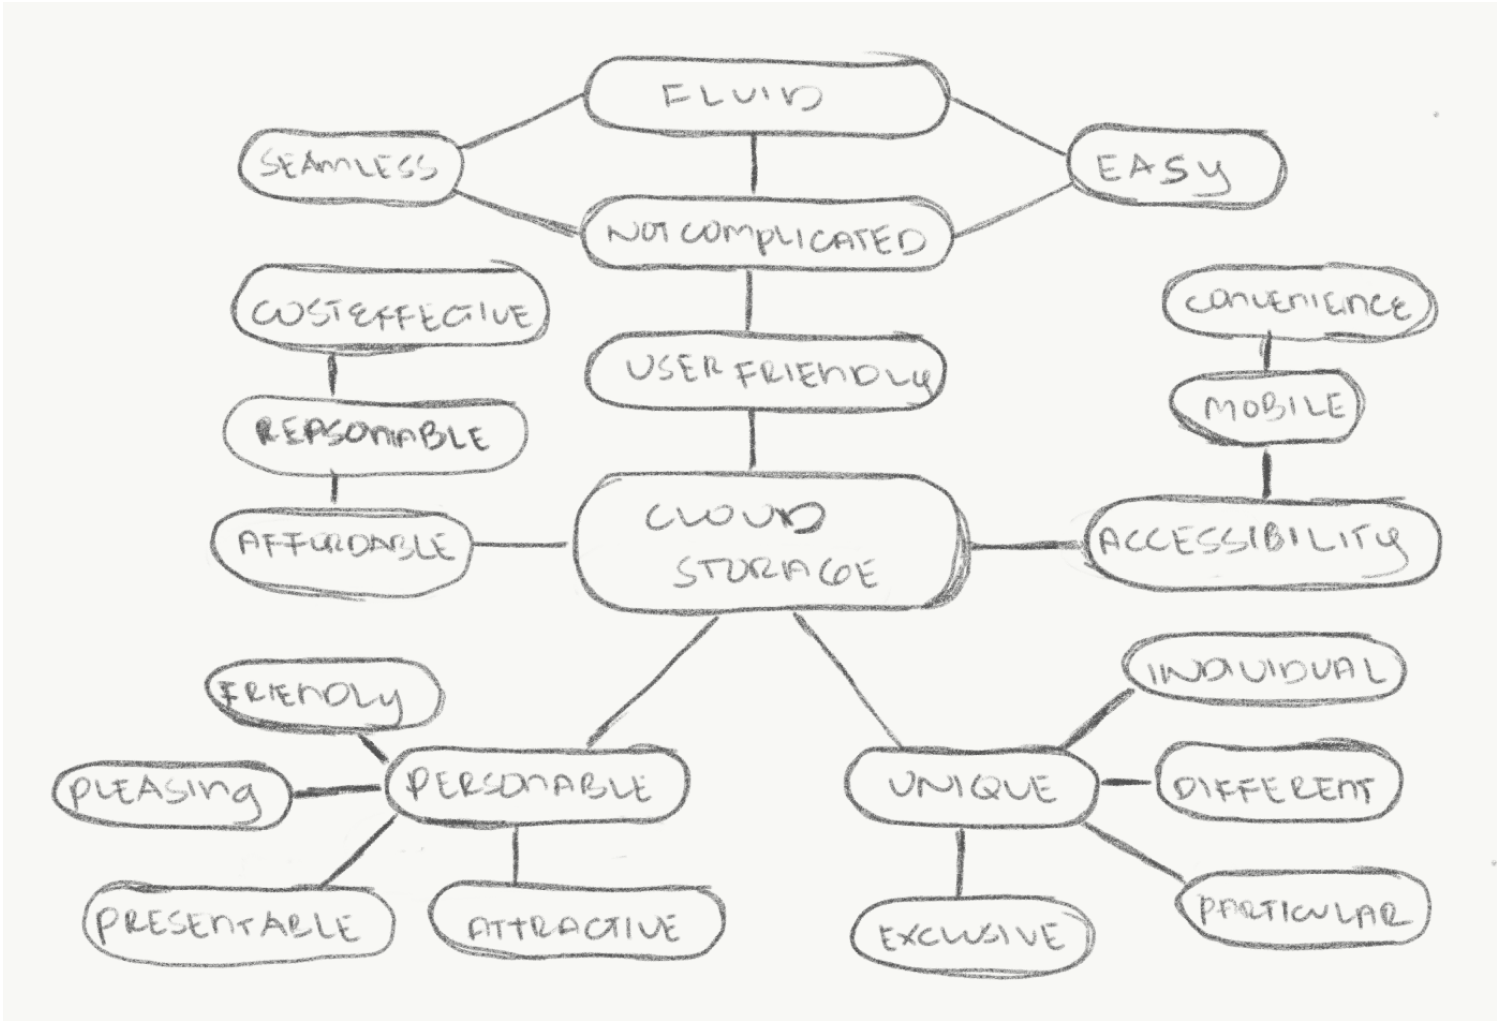 FLUID
SEAMLESS
EASY
NOT COMPLICATED
COST EFFECTIVE
CONVENIENCE
USER FRIENDLY
MOBILE
REASONABLE
CLOUD
STORAGE
AFFORDABLE
ACCESSIBILITY
FRIENDLY
INDIVIDUAL
PLEASING
PERSONABLE
UNIQUE
DIFFERENT
PRESENTABLE
ATTRACTIVE
EXCLUSIVE
PARTICULAR